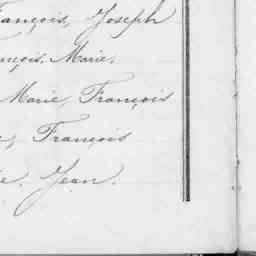 François, Joseph
François, Marie,
Marie, François
, François
, Jean.